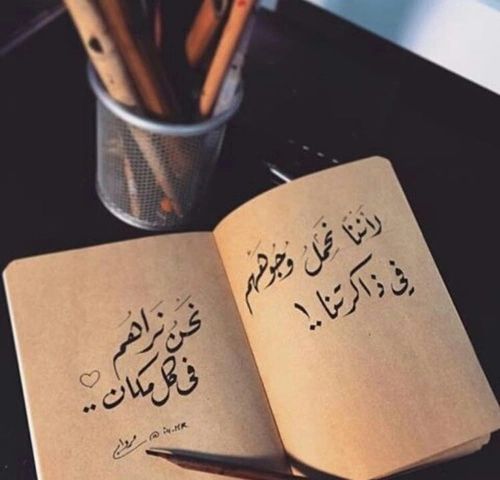 لأننا نحمل وجوههم
في ذاكرتنا ..!
نحن نراهم
في كل مكان ..
مروان @iv.HR